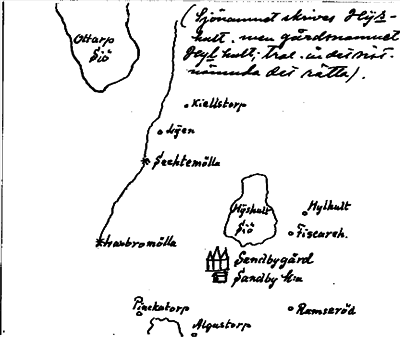 (Sjönamnet skrives Hÿs-
hult. men gårdsnamnet
Heÿl hult; tral. är det sist-
nämnda det rätta).
Ottarp
Siö
Kiellstorp
Lÿen
Sechtemölla
Hÿshult
Siö
Hylhult
Fiscareh.
Haxbromölla
Sandbygård
Sandby Ka
Pinckatorp
Ramseröd
Algustorp